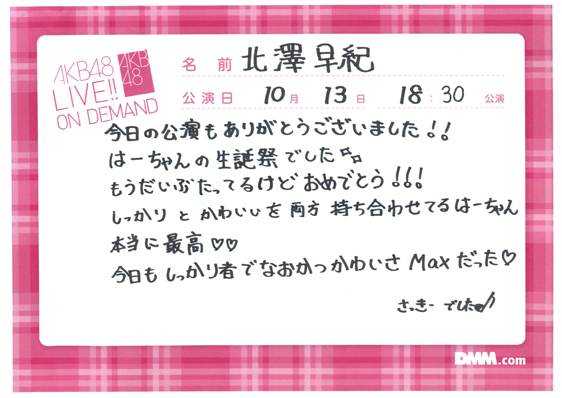 AKB48
LIVE!!
ON DEMAND
AKB
48
名 前 北澤早紀
公演日 10月 13日 18:30 公演
今日の公演もありがとうございました!!
はーちゃんの生誕祭でした
もうだいぶたってるけどおめでとう!!!
しっかりとかわいいを両方持ち合わせてるはーちゃん
本当に最高♡♡
今日もしっかり者でなおかつかわいさMaxだった♡
さっきーでした♪
DMM.com